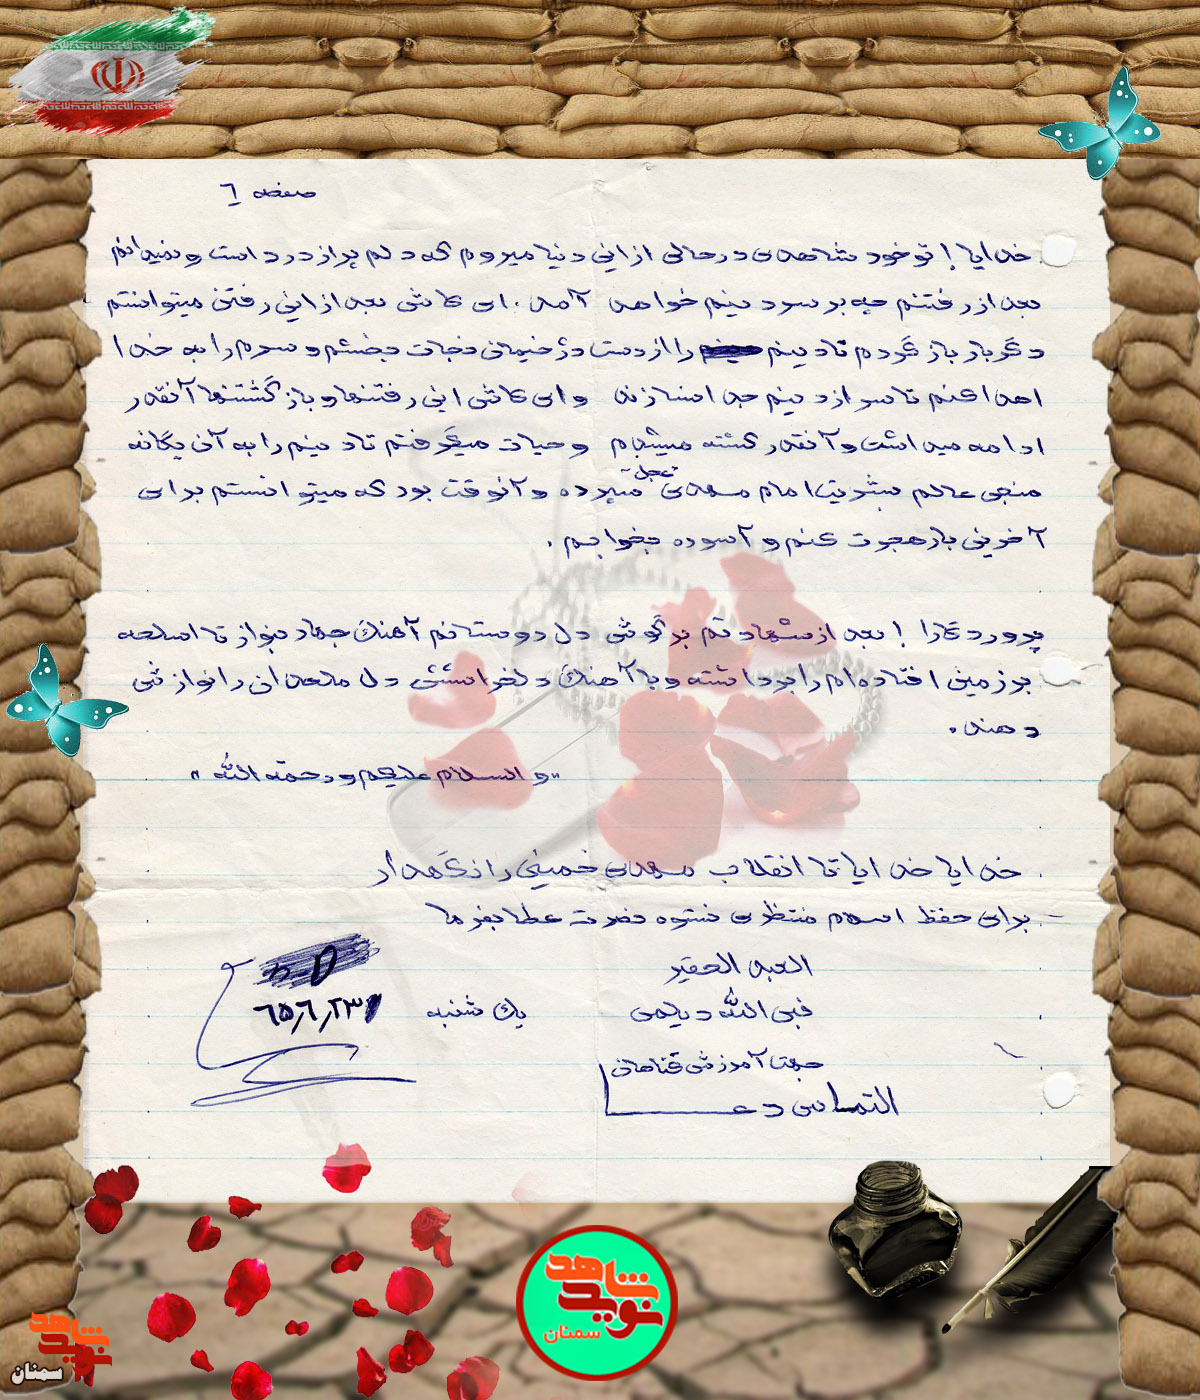 صفحه ٦
خدایا ! تو خود شاهدی درحالی از این دنیا میروم که دلم پر از درد است و نمیدانم
بعد از رفتنم چه بر سر دینم خواهد آمد . ای کاش بعد از این رفتن میتوانستم
دگر بار باز گردم تا دینم را از دست دژخیمان نجات بخشم و سرم را به خدا
اهدا کنم تا سر از دینم جدا نسازند و ای کاش این رفتنها و بازگشتنها آنقدر
ادامه میداشت و آنقدر کشته میشدم و حیات میگرفتم تا دینم را به آن یگانه
منجی عالم بشریت امام مهدی عجل سپرده و آنوقت بود که میتوانستم برای
آخرین بار هجرت کنم و آسوده بخوابم .
پروردگارا ! بعد از شهادتم بر گوش دل دوستانم آهنگ جهاد بنواز تا اسلحه
بر زمین افتاده‌ام را برداشته و با آهنگ دلخراشش دل ملحدان را نوازش
دهند .
« والسلام علیکم و رحمة الله »
خدایا خدایا تا انقلاب مهدی خمینی را نگهدار
- برای حفظ اسلام منتظری نستوه نصرت عطا بفرما
العبد الحقیر
نبی الله دیلمی یک شنبه ٦٥٫٦٫٢٣
جهت آمرزش گناهان
التماس دعا
شاهد
نوید
سمنان
شاهد
نوید
سمنان